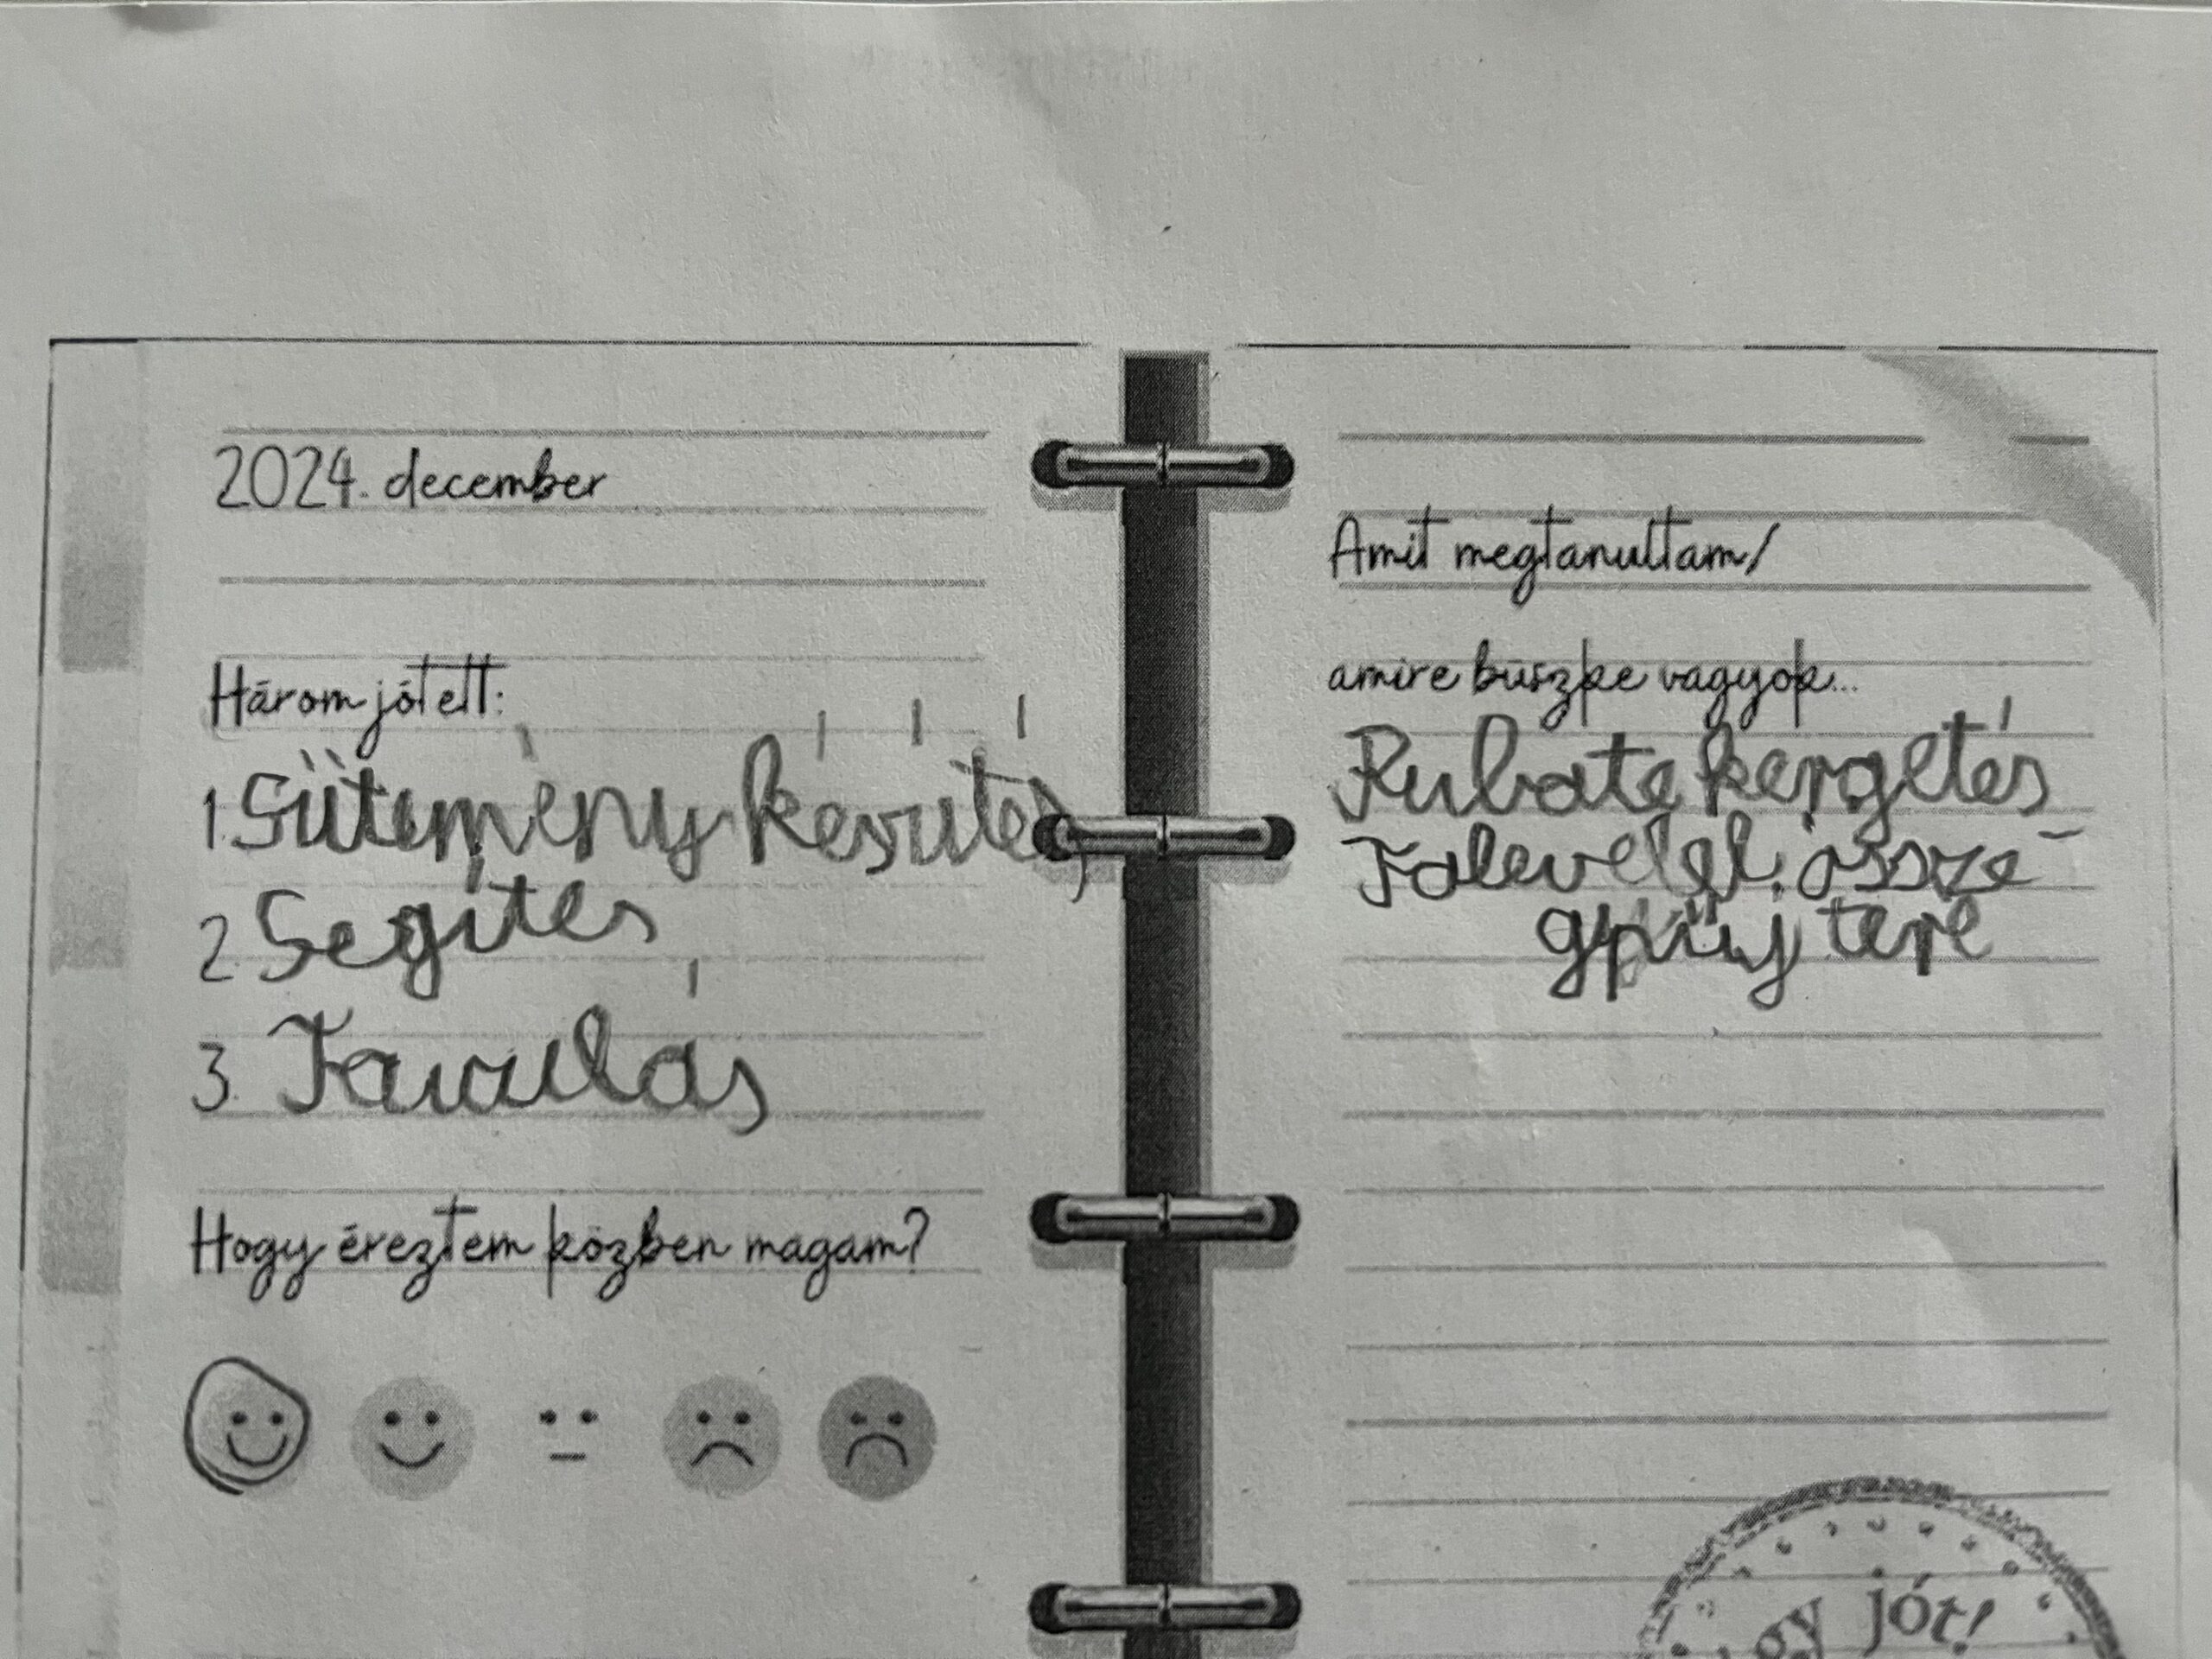 2024. december
Három jótett:
1. Sütemény készítés
2. Segítés
3. Tanulás
Hogy éreztem közben magam?
Amit megtanultam/
amire büszke vagyok...
kergetés
Falevelel össze-
tére
gy jót!